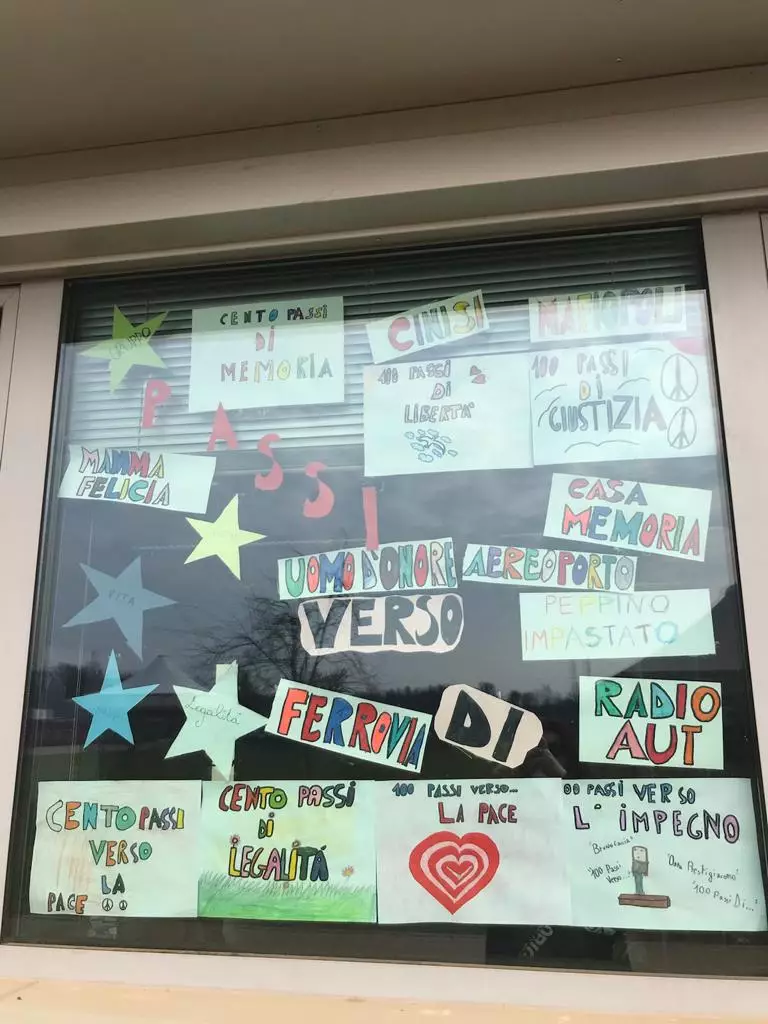 GRUPPO
CENTO PASSI
DI
MEMORIA
CINISI
100 PASSI
DI
LIBERTA'
100 PASSI
DI
GIUSTIZIA
PASSI
MAMMA
FELICIA
CASA
MEMORIA
UOMO D'ONORE
AEREOPORTO
VERSO
PEPPINO
IMPASTATO
VITA
Legalità
FERROVIA
DI
RADIO
AUT
CENTO PASSI
VERSO
LA
PACE
CENTO PASSI
DI
LEGALITÁ
100 PASSI VERSO...
LA PACE
00 PASSI VERSO
L' IMPEGNO
"100 Passi
Verso..."
"100 Passi Di..."